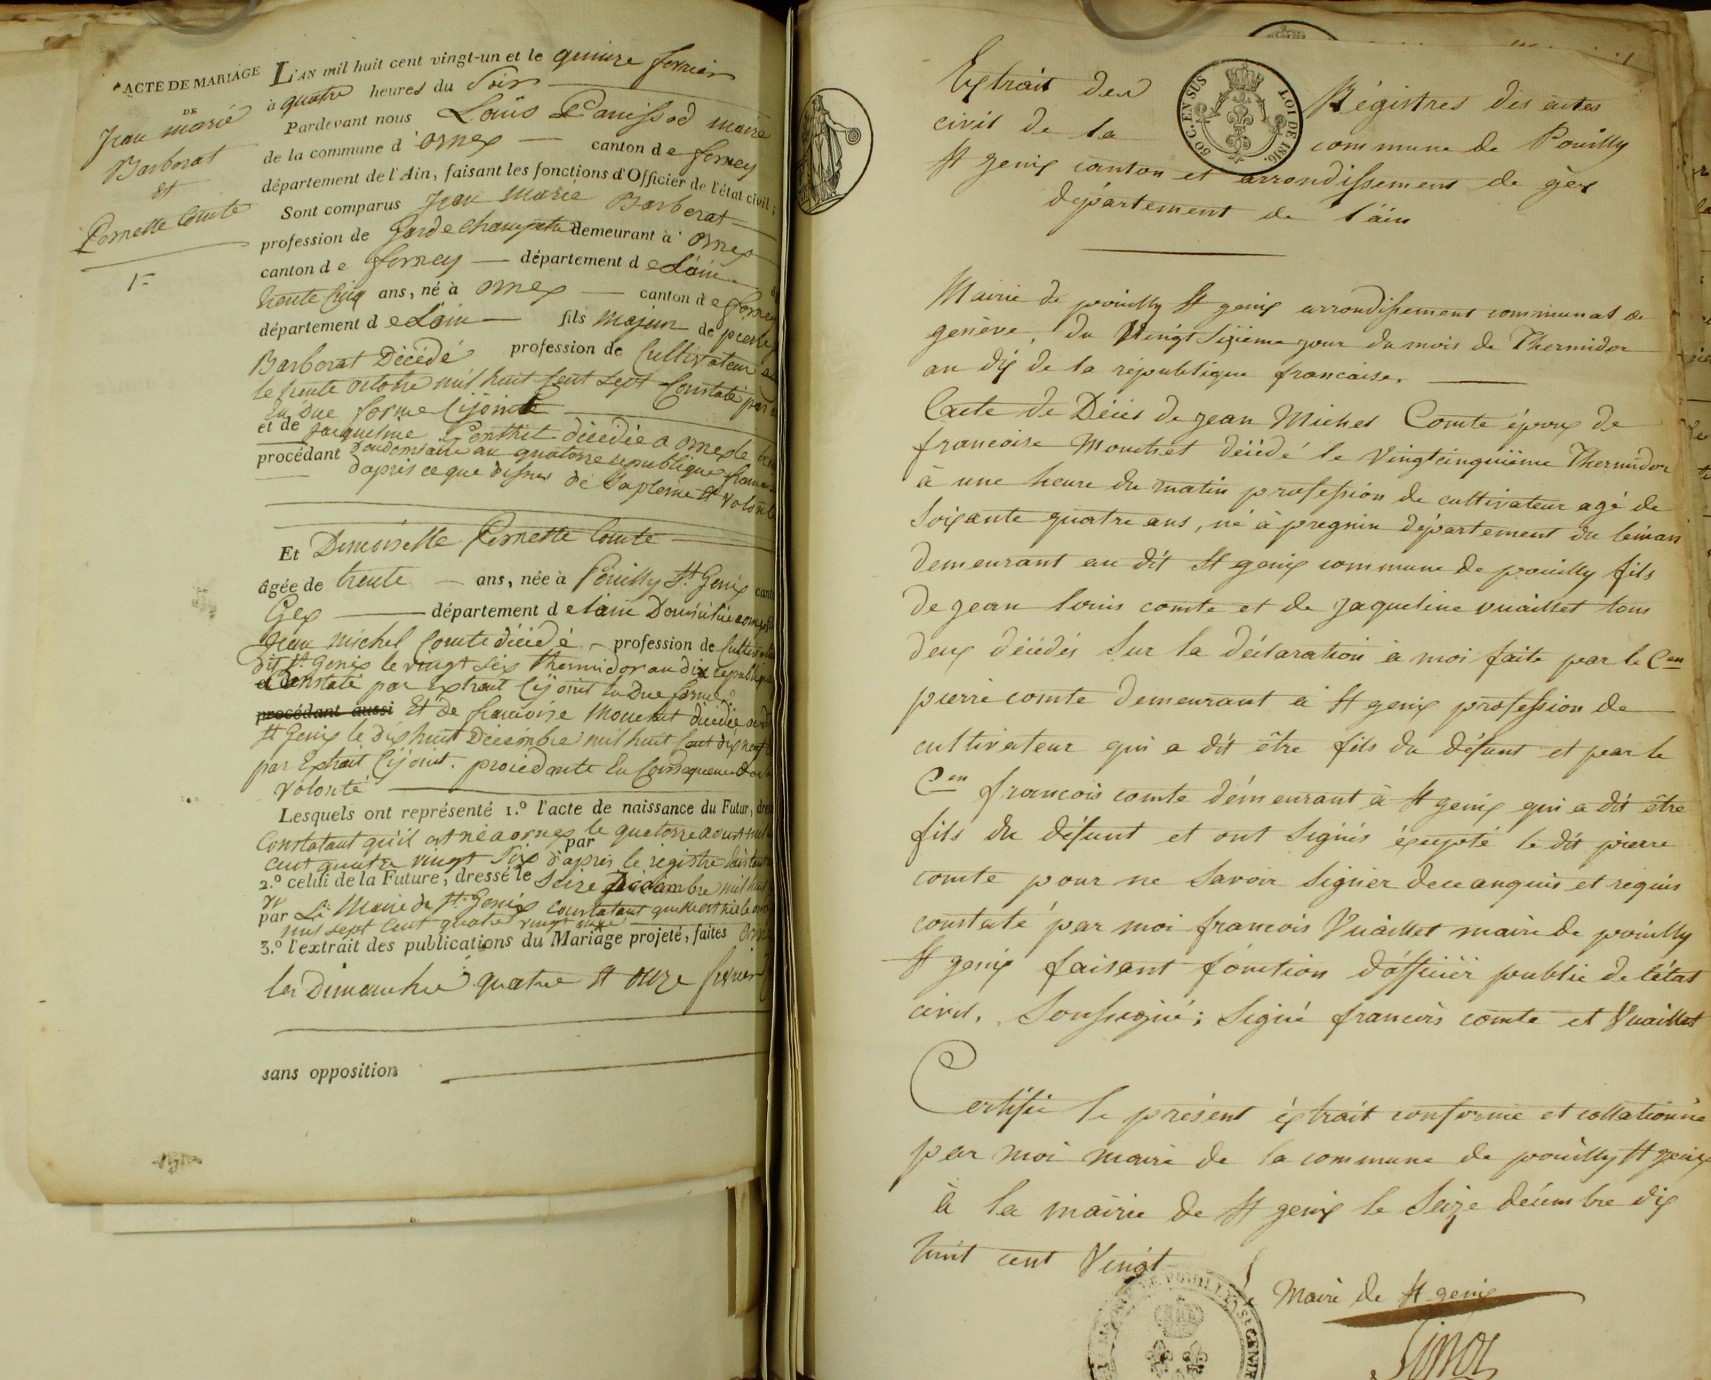 ACTE DE MARIAGE
DE
Jean marie
Barberat
et
Pernette Comte
1=
L'AN mil huit cent vingt-un et le quinze fevrier
à quatre heures du Soir
Pardevant nous Louis Panissod maire
de la commune d'ornex canton de ferney
département de l'Ain, faisant les fonctions d'Officier de l'état civil;
Sont comparus Jean Marie Barberat
profession de Garde Champetre demeurant à ornex
canton de ferney département de Lain
trente Cinq ans, né à ornex canton de ferney
département de Lain fils majeur de pierre
Barberat Décédé profession de Cultivateur
le trente octobre mil huit Cent Sept Constaté par
En Due forme Cijointe
et de Jacqueline Décédée a ornex le
procédant an quatorze republique
d'aprés ce que dessus de Sa pleine et volonté
Et Demoiselle Pernette Comte
âgée de trente ans, née à Pouilly St. Genix
Gex département de Lain Domiciliée a ornex
Jean Michel Comte décédé profession de
dit St. Genix le vingt six thermidor an dix
et Constaté par Extrait Cijoint en Due forme
procédant aussi Et de françoise Mouchet décédée
St Genix le dix huit Decembre mil huit Cent dix neuf
par Extrait Cijoint. procédante En Consequence
volonté
Lesquels ont représenté 1.º l'acte de naissance du Futur,
Constatant qu'il est né a ornex le quatorze aoust mil
cent quatre vingt Six d'aprés le registre
par
2.º celui de la Future, dressé le Seize Décembre mil huit
par Le Maire de St. Genix constatant quelle est née le
mil sept Cent quatre vingt
3.º l'extrait des publications du Mariage projeté, faites
les Dimanches quatre et onze fevrier
sans opposition
Extrait des Régistres des actes
civil de la commune de Pouilly
St genix canton et arrondissement de gex
département de l'ain
50 C. EN SUS
LOI DE 1816.
Mairie de pouilly St genix arrondissement communal de
genève, du Vingt Sixième jour du mois de Thermidor
an dix de la république française.
L'acte de Décès de jean Michel Comte époux de
francoise Mouchet décédé le Vingtcinquième Thermidor
à une heure du matin profession de cultivateur agé de
Soixante quatre ans, né à pregnin département du léman
demeurant au dit St genix commune de pouilly fils
de jean louis comte et de jaqueline vuaillet tous
deux décédés sur la déclaration à moi faite par le Cen
pierre comte demeurant à St genix profession de
cultivateur qui a dit être fils du défunt et par le
Cen francois comte démeurant à St genix qui a dit être
fils du défunt et ont Signés éxcepté le dit pierre
comte pour ne Savoir Signer de ce anquis et réquis
constaté par moi francois Vuaillet maire de pouilly
St genix faisant fonction d'officier public de l'état
civil. Soussigné; Signé francois comte et Vuaillet
Certifié le présent éxtrait conforme et collationné
par moi maire de la commune de pouilly St genix
à la mairie de St genix le Seize décembre dix
huit cent Vingt
Maire de St genix